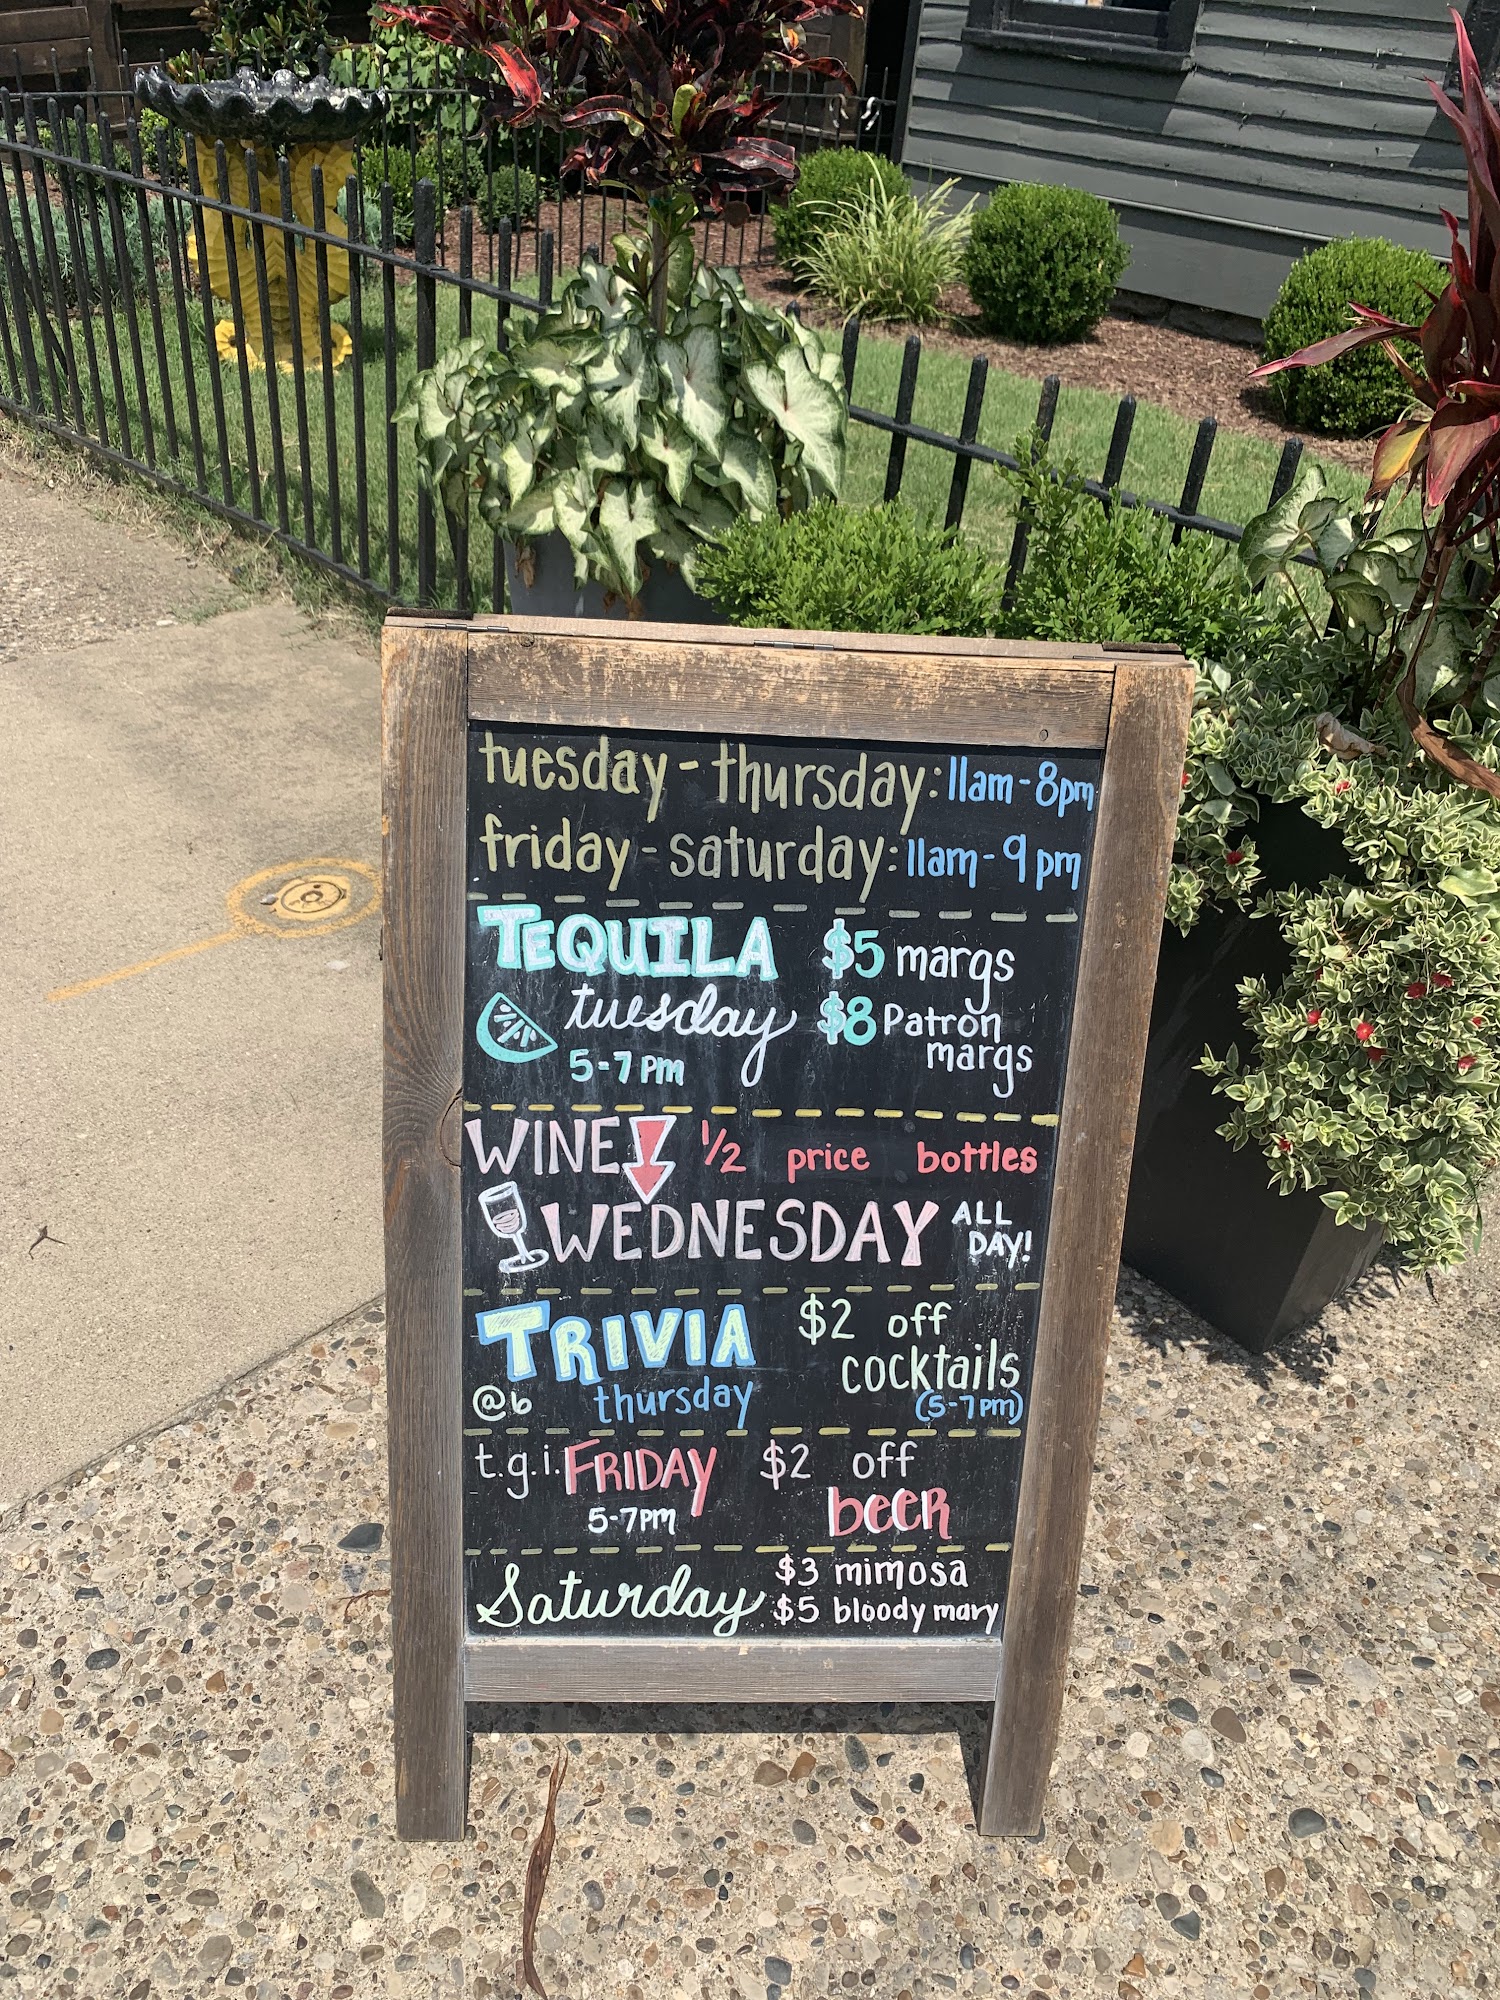 tuesday - thursday: 11am - 8pm
friday - saturday: 11am - 9pm
TEQUILA $5 margs
tuesday $8 Patrón
margs
5-7pm
WINE 1/2 price bottles
WEDNESDAY ALL
DAY!
TRIVIA $2 off
cocktails
@6 thursday (5-7pm)
t.g.i. FRIDAY $2 off
5-7pm beer
Saturday $3 mimosa
$5 bloody mary